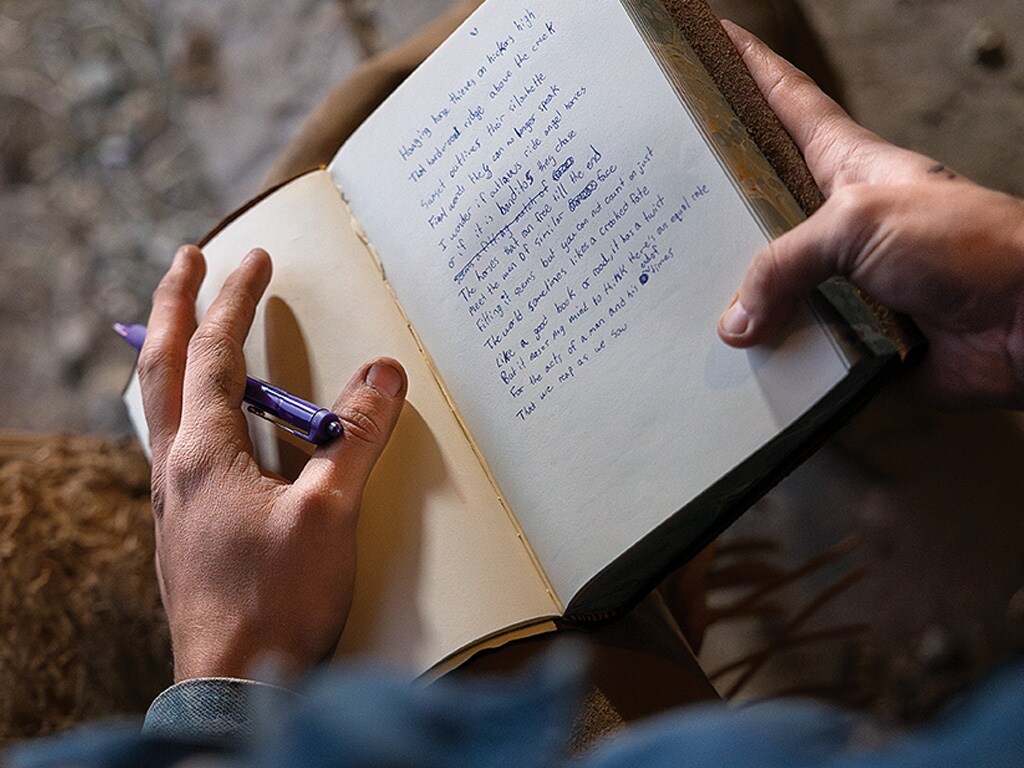 Hanging horse thieves on hickory high
That hardwood ridge above the creek
Sunset outlines their silouhette
Final words they can no longer speak
I wonder if outlaws ride angel horses
or if it is bandits they chase
The horses that run free till the end
meet the men of similar face
Fitting it seems but you can not count on just
The world sometimes likes a crooked fate
Like a good book or road, it has a twist
But it eases my mind to think there's an equal rate
For the acts of a man and his times
That we reap as we sow